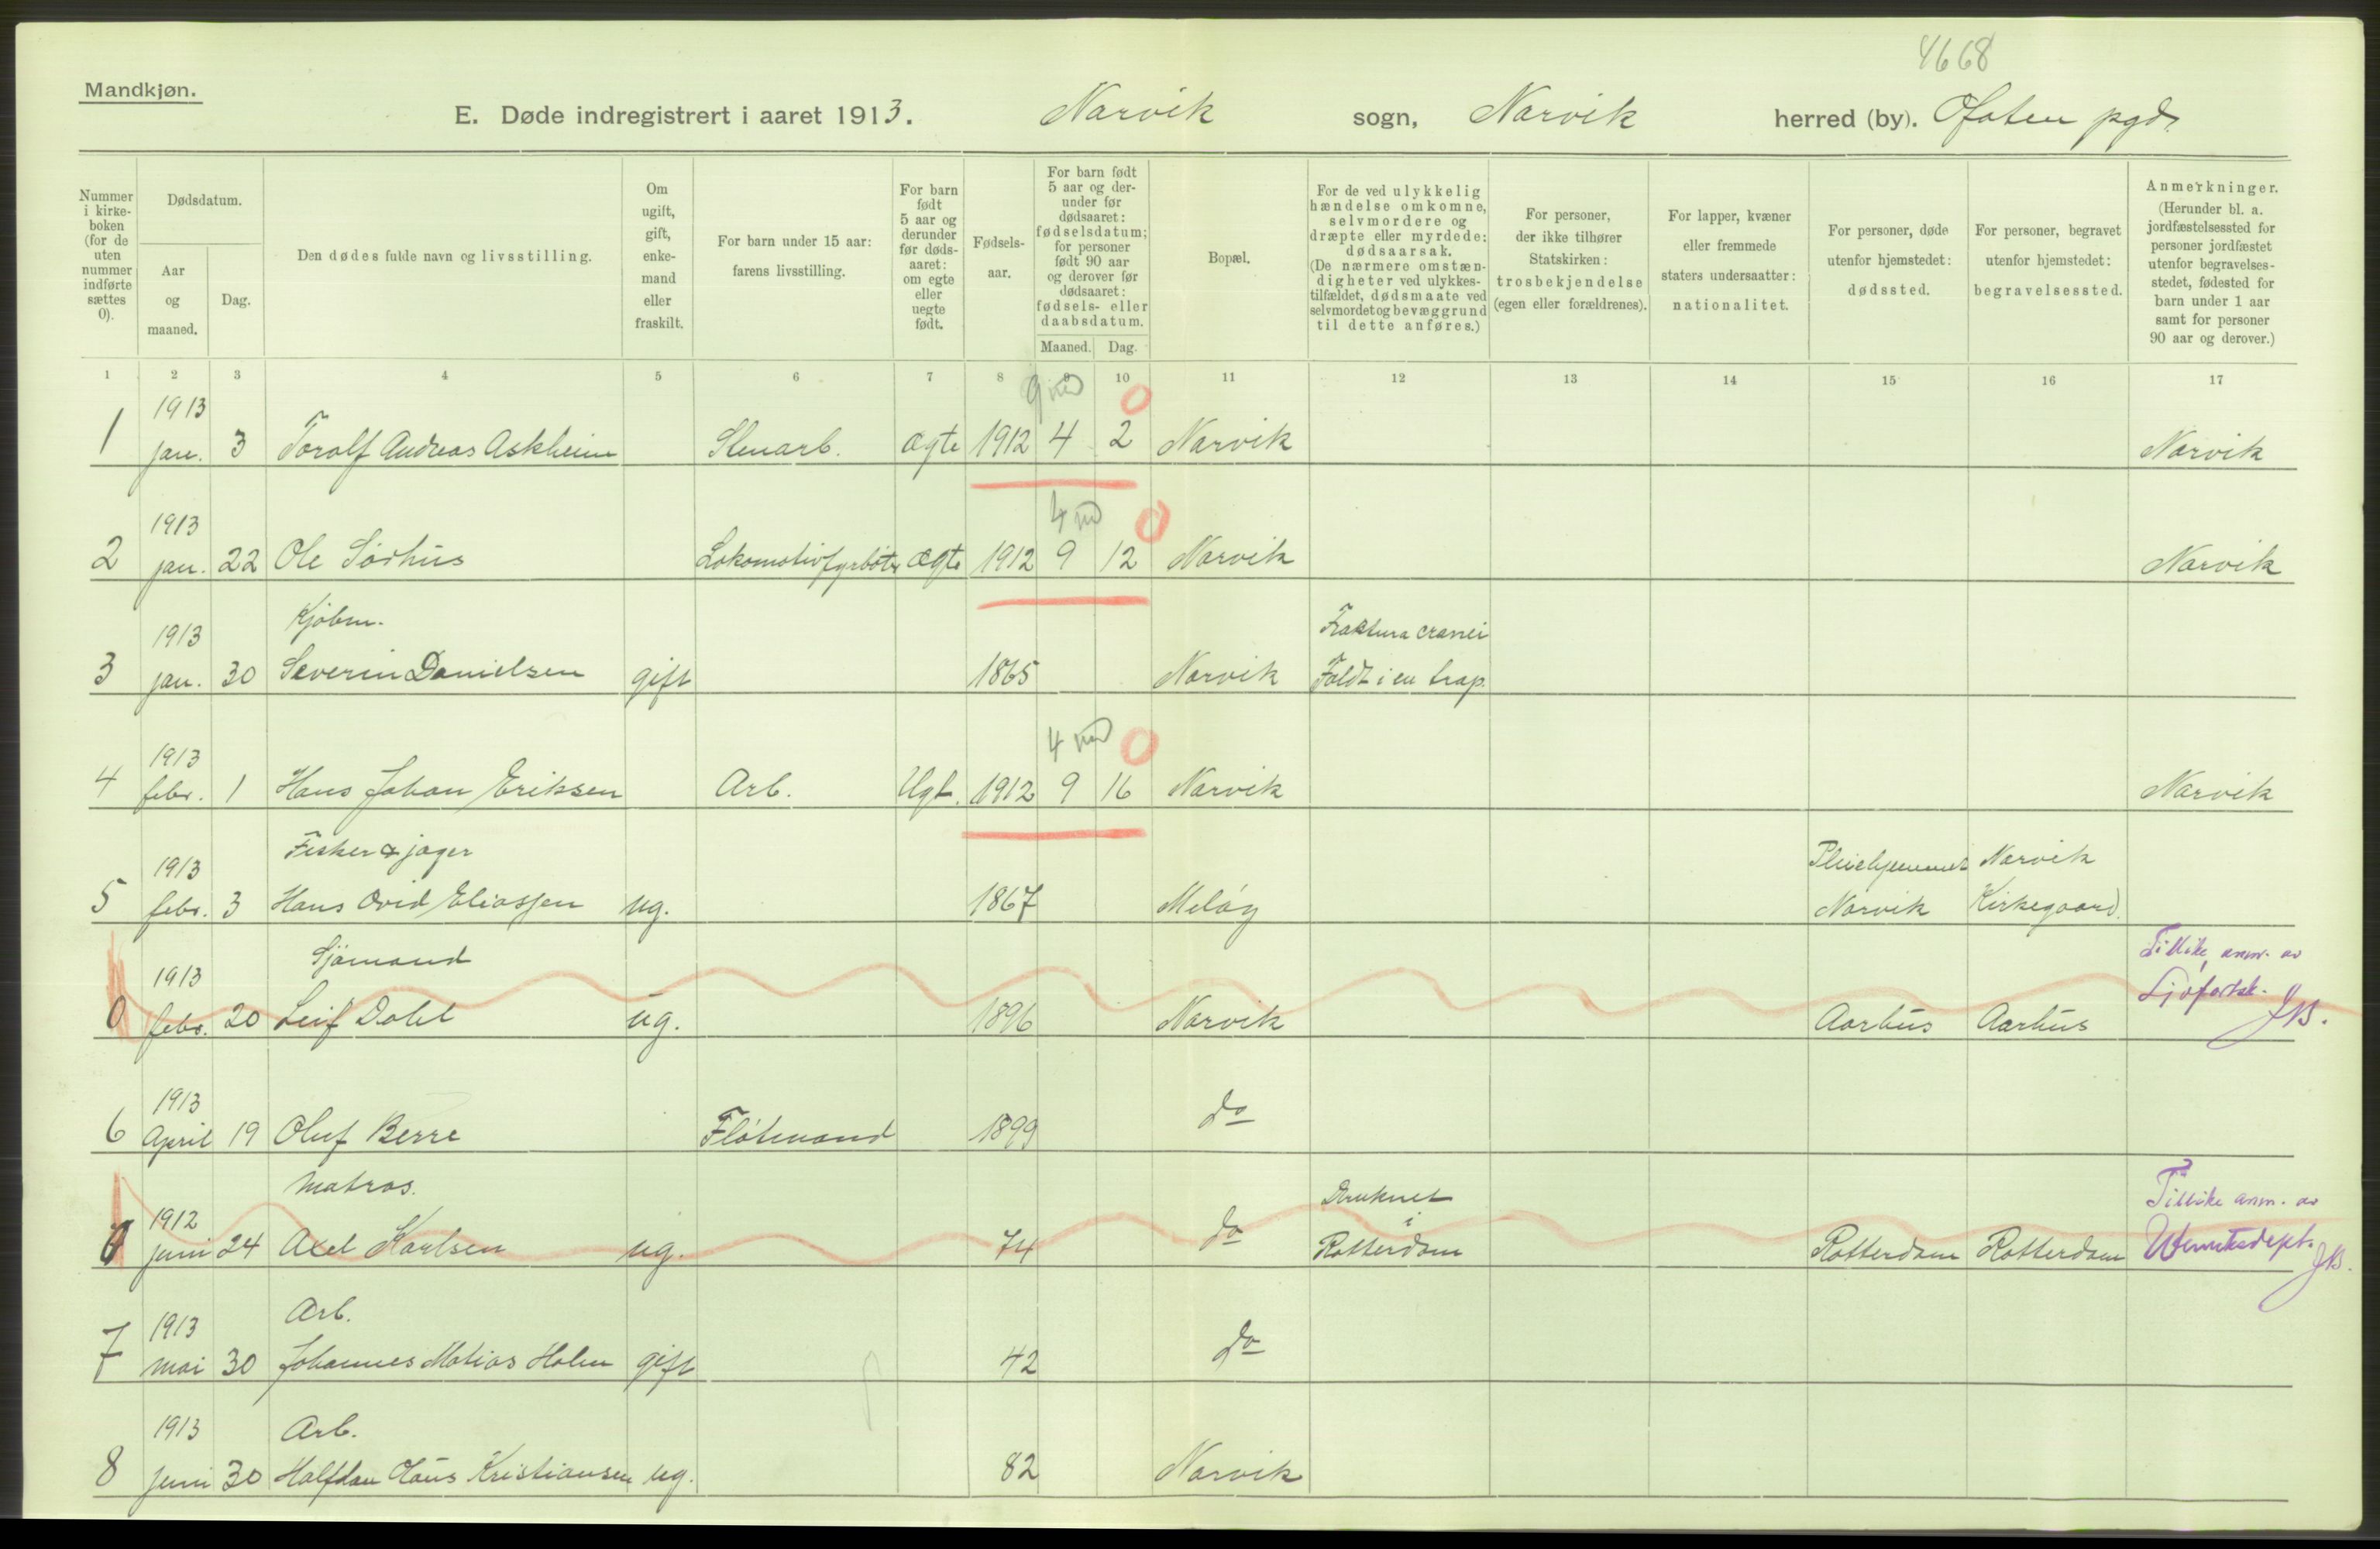 4668
Mandkjøn.
E. Døde indregistrert i aaret 1913. Narvik sogn, Narvik herred (by). Ofoten pgd.
Nummer i kirke-boken (for de uten nummer indførte sættes 0).
Dødsdatum.
Aar og maaned.
Dag.
Den dødes fulde navn og livsstilling.
Om ugift, gift, enke-mand eller fraskilt.
For barn under 15 aar: farens livsstilling.
For barn født 5 aar og derunder før døds-aaret: om egte eller uegte født.
Fødsels-aar.
For barn født 5 aar og der-under før dødsaaret: fødselsdatum; for personer født 90 aar og derover før dødsaaret: fødsels- eller daabsdatum.
Maaned. Dag.
Bopæl.
For de ved ulykkelig hændelse omkomne, selvmordere og dræpte eller myrdede: dødsaarsak. (De nærmere omstæn-digheter ved ulykkes-tilfældet, dødsmaate ved selvmordet og bevæggrund til dette anføres.)
For personer, der ikke tilhører Statskirken: trosbekjendelse (egen eller forældrenes).
For lapper, kvæner eller fremmede staters undersaatter: nationalitet.
For personer, døde utenfor hjemstedet: dødssted.
For personer, begravet utenfor hjemstedet: begravelsessted.
Anmerkninger. (Herunder bl. a. jordfæstelsessted for personer jordfæstet utenfor begravelses-stedet, fødested for barn under 1 aar samt for personer 90 aar og derover.)
1 2 3 4 5 6 7 8 9 10 11 12 13 14 15 16 17
1913 9 md 0
1 jan. 3 Toralf Andreas Askheim Stenarb. ægte 1912 4 2 Narvik Narvik
1913 4 md 0
2 jan. 22 Ole Sørhus Lokomotivfyrbøt. ægte 1912 9 12 Narvik Narvik
1913 Kjøbm. Fraktura cranei
3 jan. 30 Severin Danielsen gift 1865 Narvik Faldt i en trap.
1913 4 md 0
4 febr. 1 Hans Johan Eriksen Arb. Ugt. 1912 9 16 Narvik Narvik
1913 Fisker & jæger Pleiehjemmet Narvik
5 febr. 3 Hans Ovid Eliassen ug. 1867 Meløy Narvik Kirkegaard.
1913 Sjømand Tillike anm. av
0 febr. 20 Leif Dahl ug. 1896 Narvik Aarhus Aarhus Sjøfartsk. JB.
1913
6 April 19 Oluf Berre Fløtmand 1899 do
1912 Matros. Druknet i Tillike anm. av
0 juni 24 Axel Karlsen ug. 74 do Rotterdam Rotterdam Rotterdam Utenriksdept. JB.
1913 Arb.
7 mai 30 Johannes Matias Holm gift 42 do
1913 Arb.
8 juni 30 Halfdan Claus Kristiansen ug. 82 Narvik